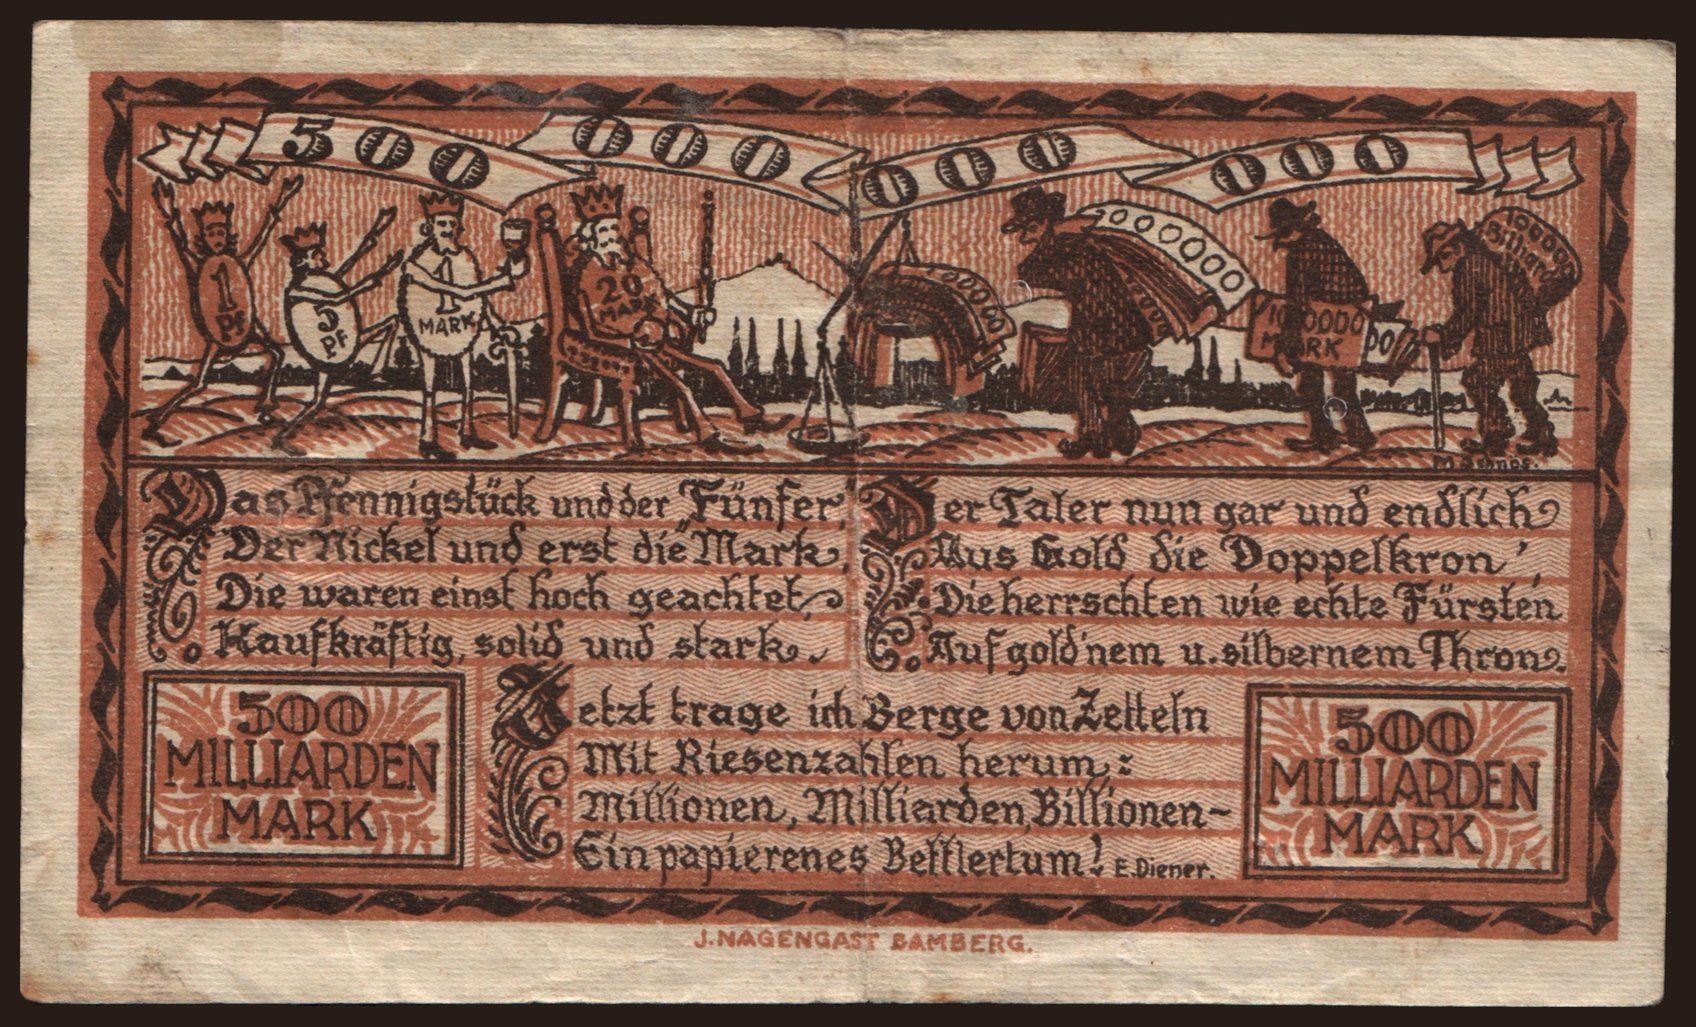 500 000 000 000
1 PF
5 PF
1 MARK
20 MARK
000000
0000000
MARK
10000
Billiard
M Schnös.
Das Pfennigstück und der „Fünfer“,
Der Nickel und erst die Mark,
Die waren einst hoch geachtet,
Kaufkräftig, solid und stark.
Der Taler nun gar und endlich
Aus Gold die Doppelkron',
Die herrschten wie echte Fürsten
Auf gold'nem u. silbernem Thron.
Jetzt trage ich Berge von Zetteln
Mit Riesenzahlen herum:
Millionen, Milliarden, Billionen-
Ein papierenes Bettlertum! E. Diener.
500
MILLIARDEN
MARK
500
MILLIARDEN
MARK
J. NAGENGAST BAMBERG.